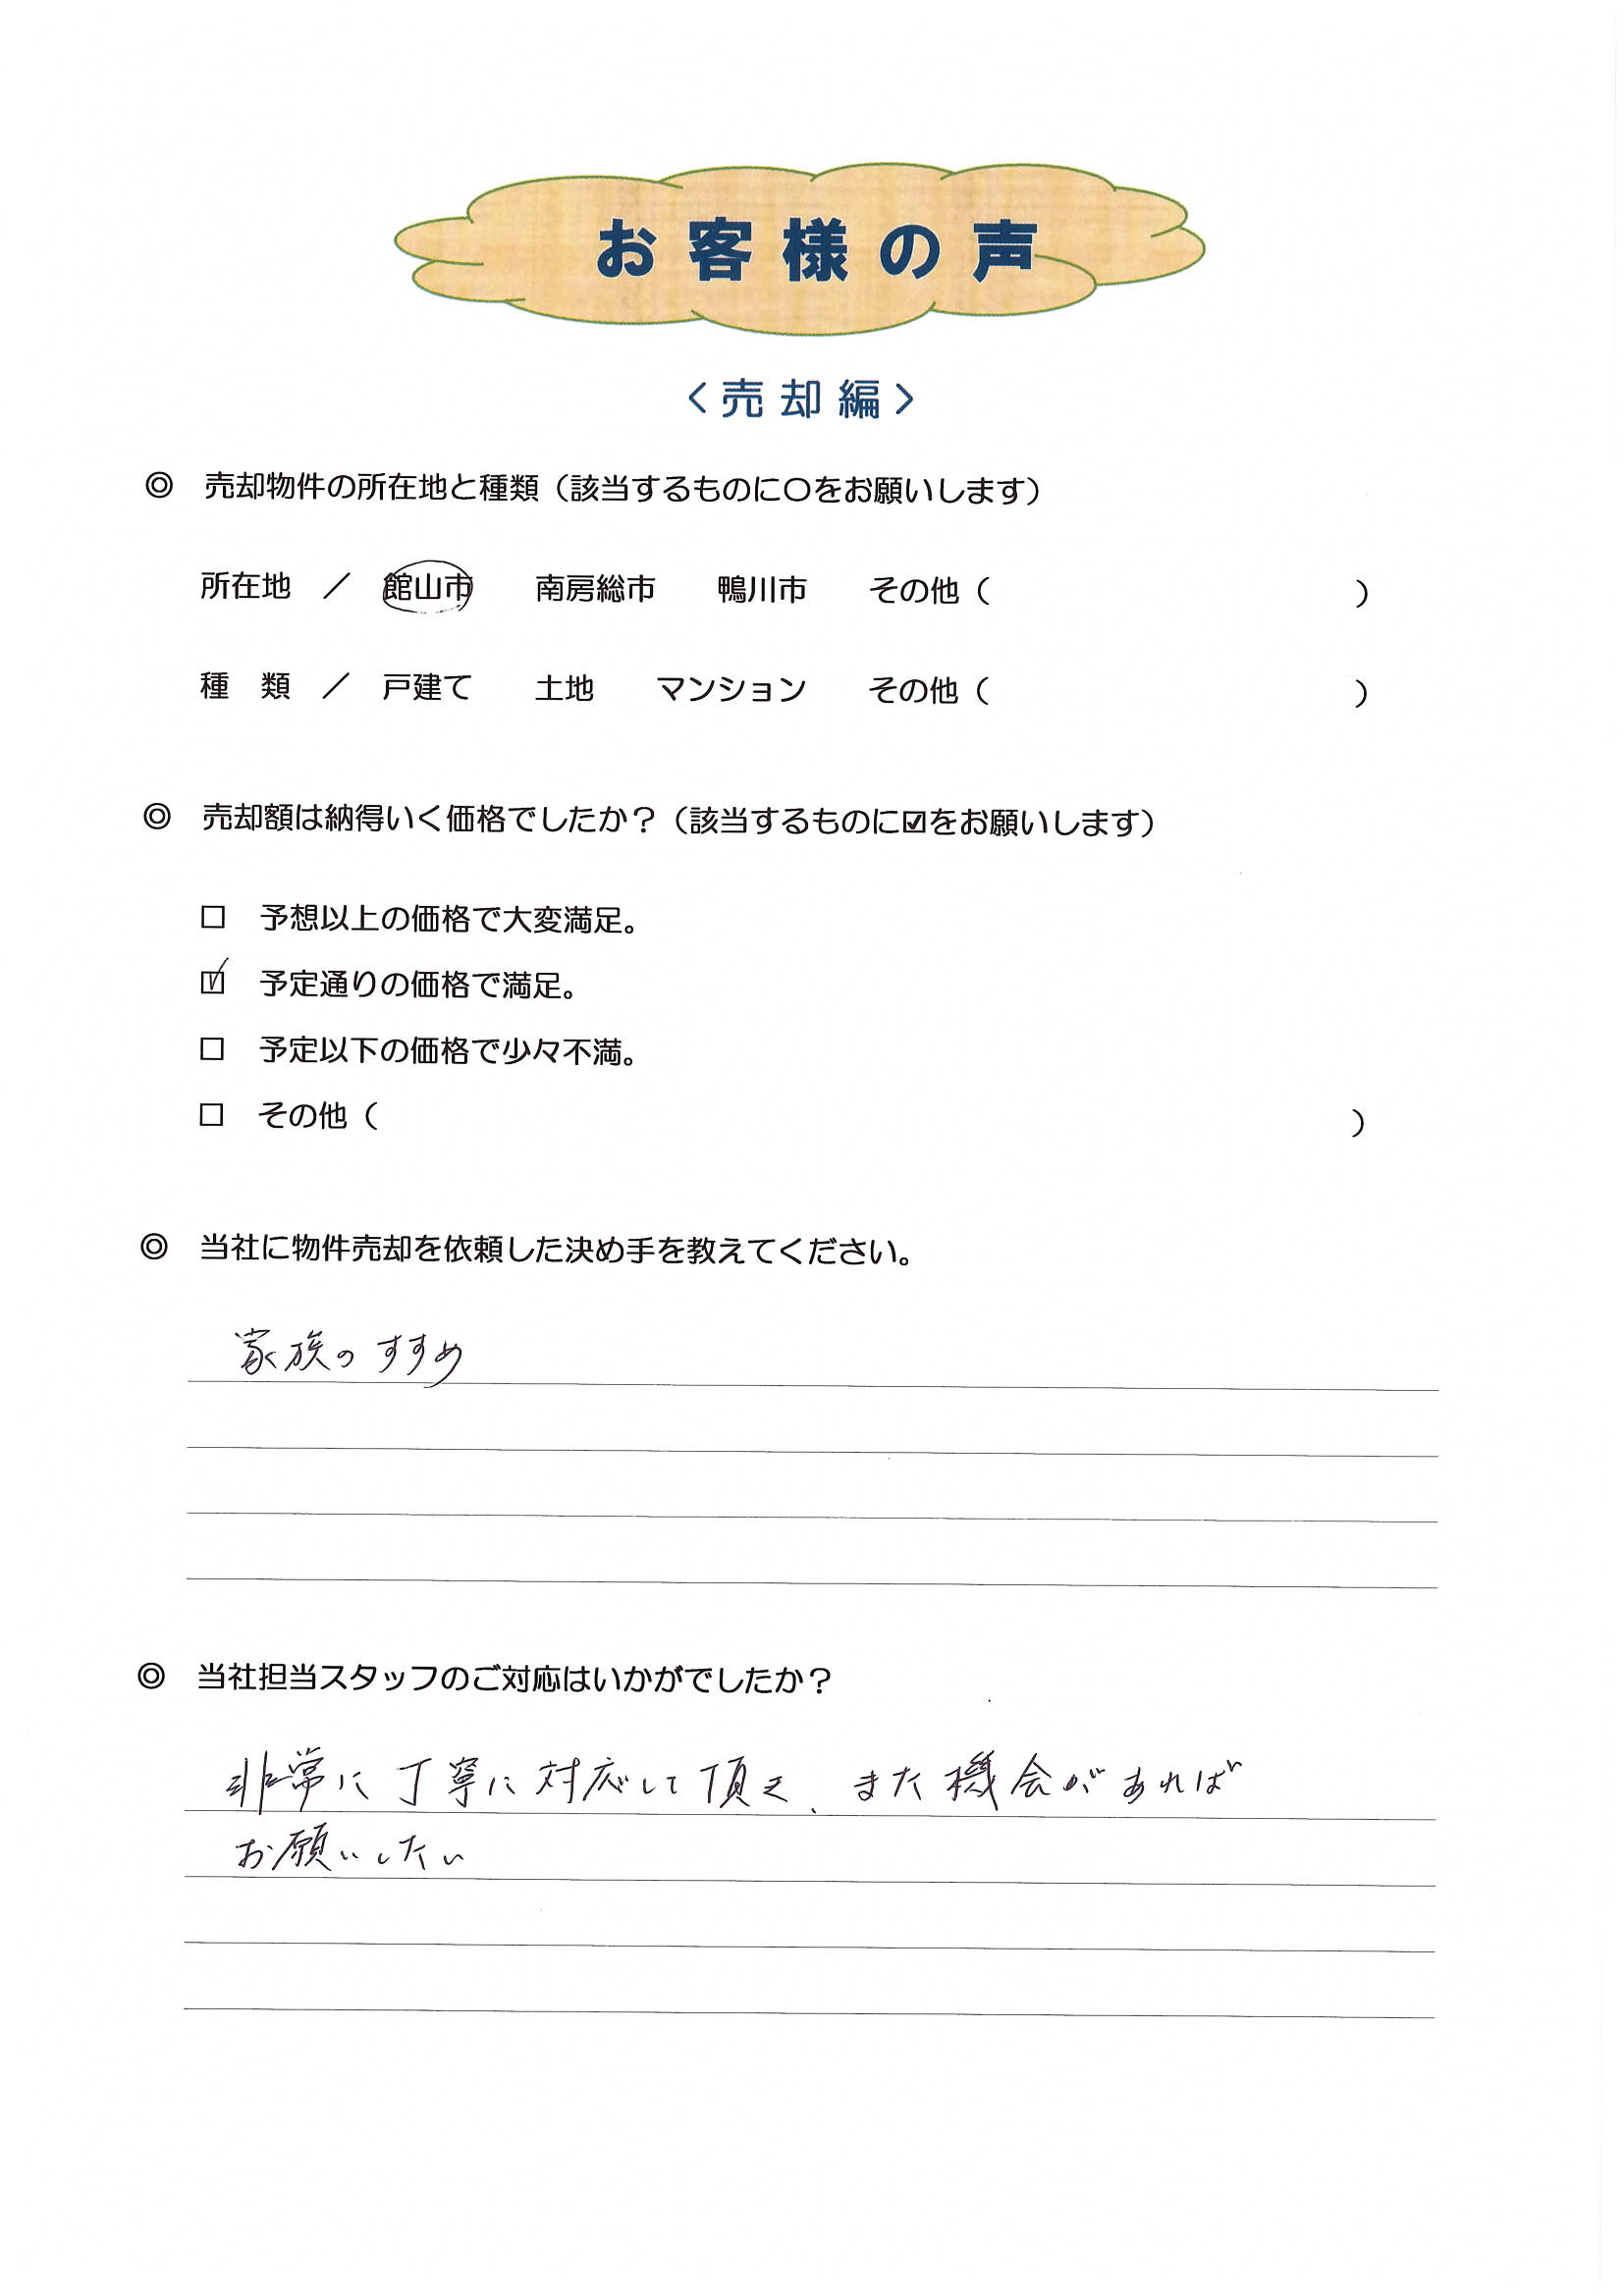 お客様の声
〈売却編〉
◎ 売却物件の所在地と種類（該当するものに〇をお願いします）
所在地 ／ 館山市 南房総市 鴨川市 その他（ ）
種 類 ／ 戸建て 土地 マンション その他（ ）
◎ 売却額は納得いく価格でしたか？（該当するものに☑をお願いします）
□ 予想以上の価格で大変満足。
☑ 予定通りの価格で満足。
□ 予定以下の価格で少々不満。
□ その他（ ）
◎ 当社に物件売却を依頼した決め手を教えてください。
家族のすすめ
◎ 当社担当スタッフのご対応はいかがでしたか？
非常に丁寧に対応して頂き、また機会があれば
お願いしたい